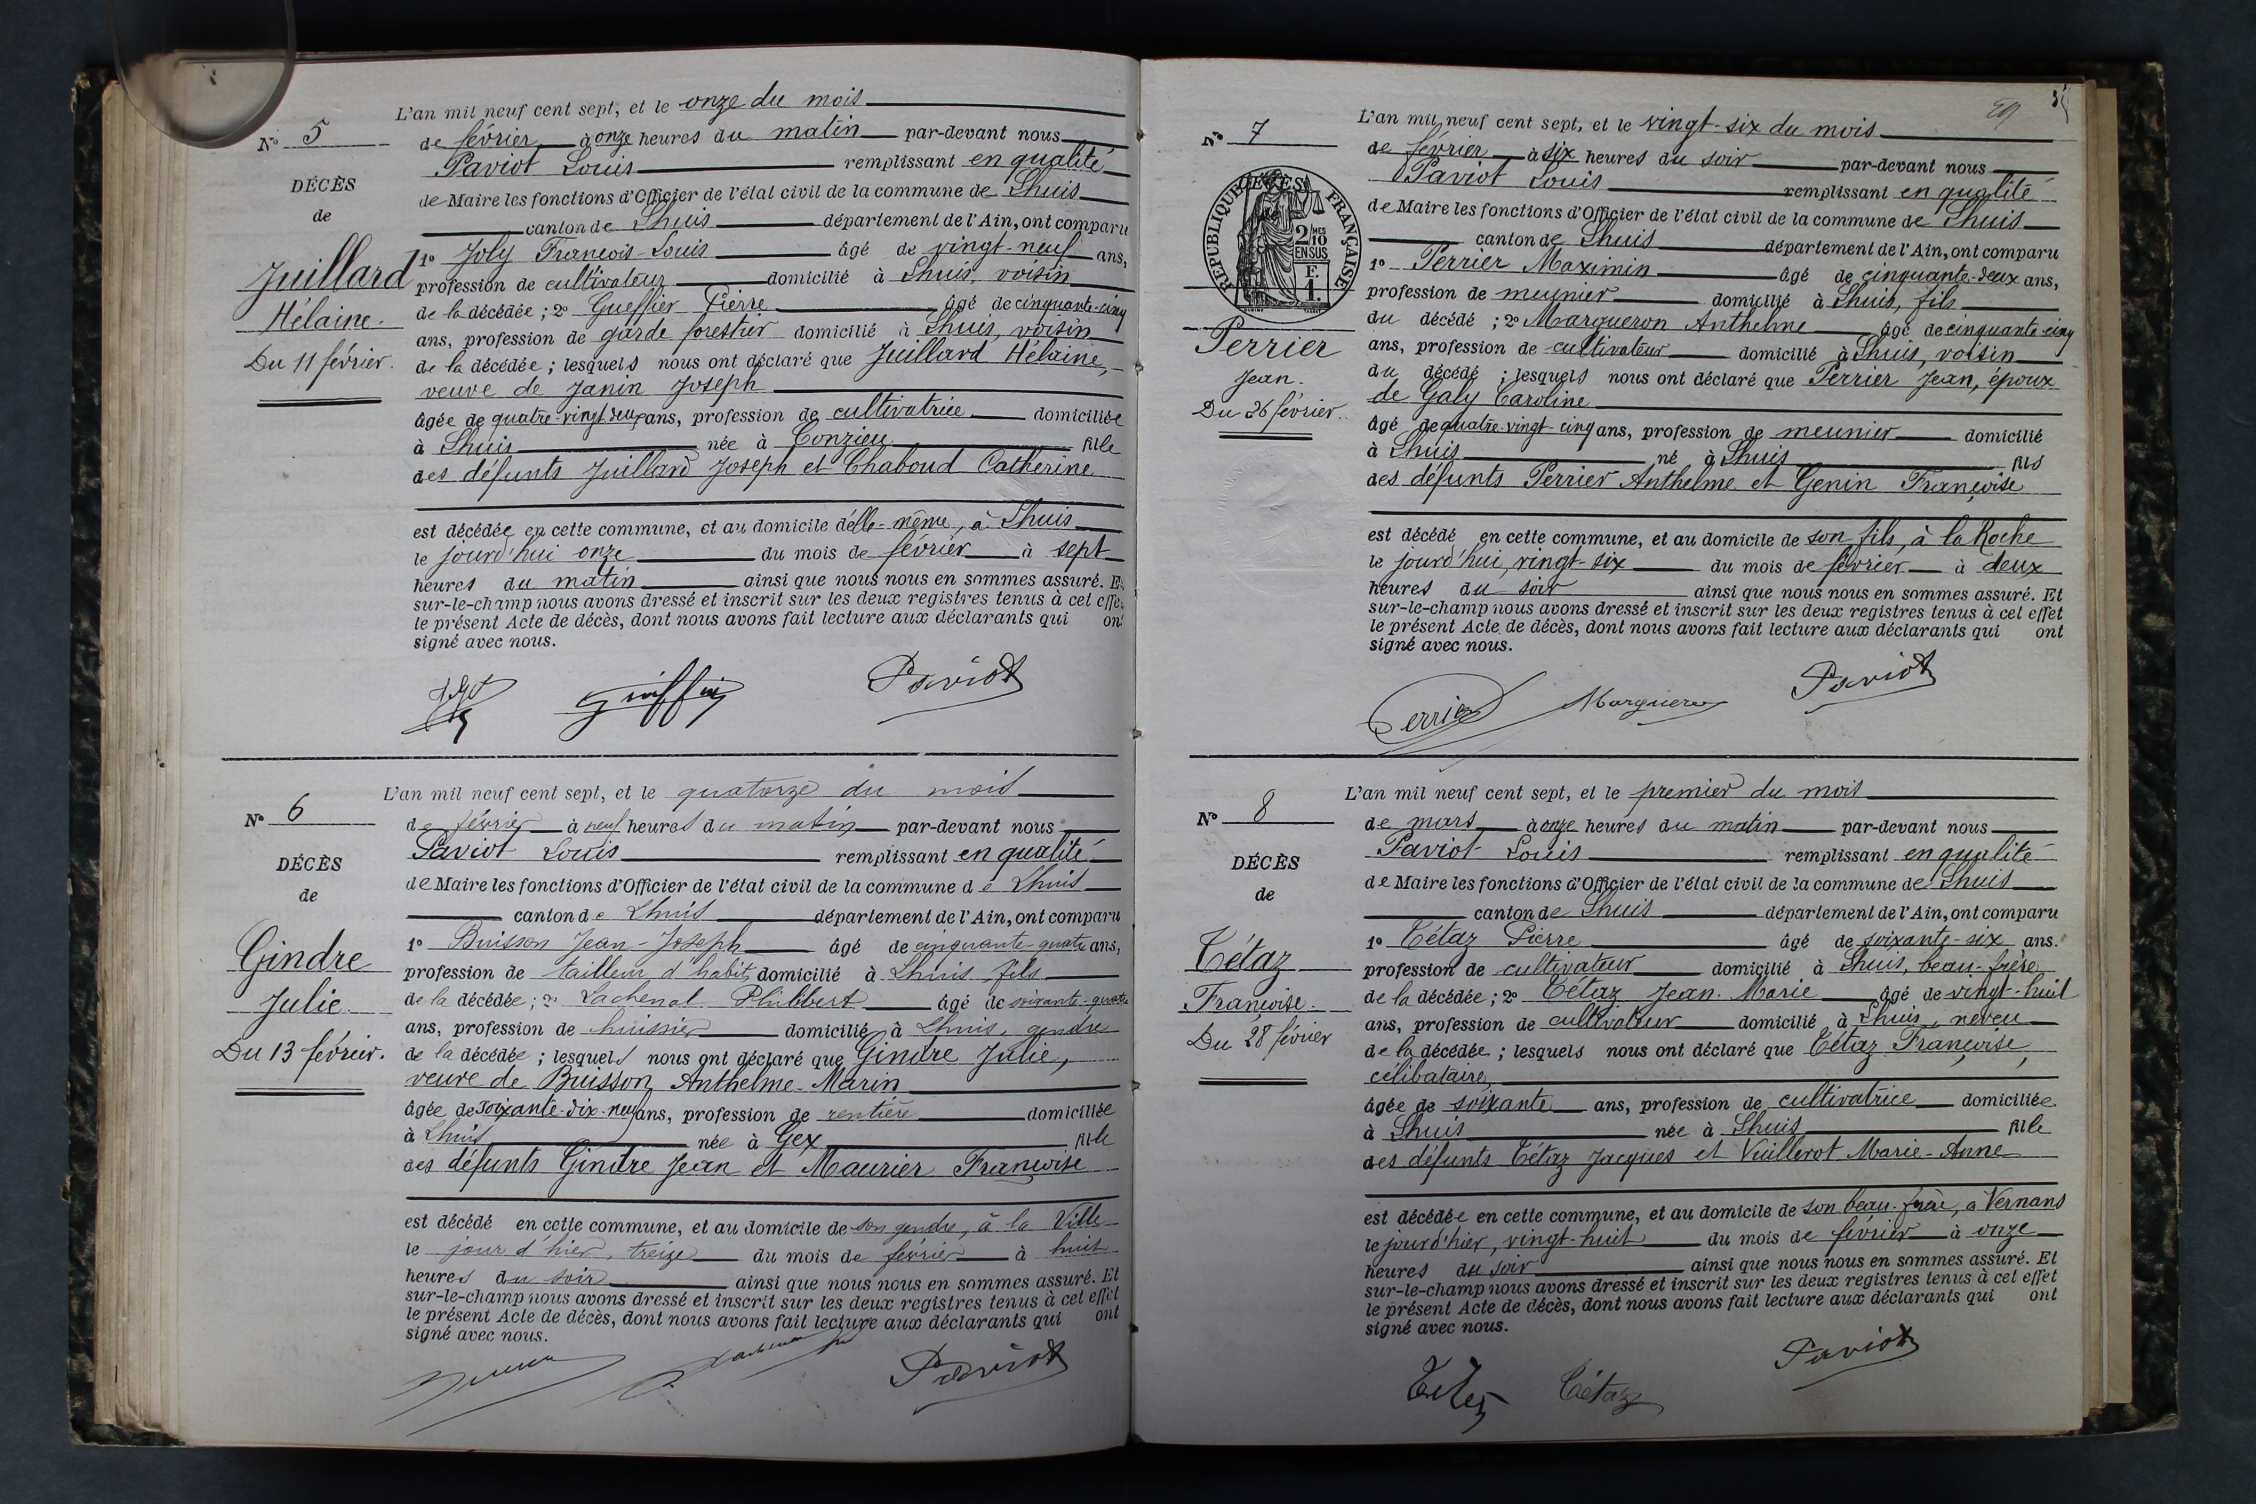 L'an mil neuf cent sept, et le onze du mois
N° 5
de février à onze heures du matin par-devant nous
Paviot Louis remplissant en qualité
DÉCÈS
de Maire les fonctions d'Officier de l'état civil de la commune de Lhuis
de
canton de Lhuis département de l'Ain, ont comparu
Juillard
1° Joly François-Louis âgé de vingt-neuf ans,
profession de cultivateur domicilié à Lhuis, voisin
Hélaine.
de la décédée ; 2° Gueffier Pierre âgé de cinquante-cinq
ans, profession de garde forestier domicilié à Lhuis, voisin
Du 11 février.
de la décédée ; lesquels nous ont déclaré que Juillard Hélaine,
veuve de Janin Joseph
âgée de quatre-vingt-deux ans, profession de cultivatrice domiciliée
à Lhuis née à Conzieu fille
des défunts Juillard Joseph et Chaboud Catherine
est décédée en cette commune, et au domicile d'elle-même, à Lhuis
le jourd'hui onze du mois de février à sept
heures du matin ainsi que nous nous en sommes assuré. Et
sur-le-champ nous avons dressé et inscrit sur les deux registres tenus à cet effet
le présent Acte de décès, dont nous avons fait lecture aux déclarants qui ont
signé avec nous.
Paviot
L'an mil neuf cent sept, et le quatorze du mois
N° 6
de février à neuf heures du matin par-devant nous
Paviot Louis remplissant en qualité
DÉCÈS
de Maire les fonctions d'Officier de l'état civil de la commune de Lhuis
de
canton de Lhuis département de l'Ain, ont comparu
Gindre
1° Buisson Jean-Joseph âgé de cinquante-quatre ans,
profession de tailleur d'habits domicilié à Lhuis, fils
Julie.
de la décédée ; 2° Lachenal Philibert âgé de soixante-quatre
ans, profession de huissier domicilié à Lhuis, gendre
Du 13 février.
de la décédée ; lesquels nous ont déclaré que Gindre Julie,
veuve de Buisson Anthelme-Marin
âgée de soixante-dix-neuf ans, profession de rentière domiciliée
à Lhuis née à Gex fille
des défunts Gindre Jean et Maurier Françoise
est décédé en cette commune, et au domicile de son gendre, à la Ville
le jour d'hier, treize du mois de février à huit
heures du soir ainsi que nous nous en sommes assuré. Et
sur-le-champ nous avons dressé et inscrit sur les deux registres tenus à cet effet
le présent Acte de décès, dont nous avons fait lecture aux déclarants qui ont
signé avec nous.
Paviot
L'an mil neuf cent sept, et le vingt-six du mois
N° 7
de février à six heures du soir par-devant nous
Paviot Louis remplissant en qualité
RÉPUBLIQUE FRANÇAISE
2/10 EN SUS
F. 1.
de Maire les fonctions d'Officier de l'état civil de la commune de Lhuis
canton de Lhuis département de l'Ain, ont comparu
1° Perrier Maximin âgé de cinquante-deux ans,
profession de meunier domicilié à Lhuis, fils
du décédé ; 2° Margueron Anthelme âgé de cinquante-cinq
Perrier
ans, profession de cultivateur domicilié à Lhuis, voisin
Jean.
du décédé ; lesquels nous ont déclaré que Perrier Jean, époux
Du 26 février.
de Galy Caroline
âgé de quatre-vingt-cinq ans, profession de meunier domicilié
à Lhuis né à Lhuis fils
des défunts Perrier Anthelme et Genin Françoise
est décédé en cette commune, et au domicile de son fils, à la Roche
le jourd'hui, vingt-six du mois de février à deux
heures du soir ainsi que nous nous en sommes assuré. Et
sur-le-champ nous avons dressé et inscrit sur les deux registres tenus à cet effet
le présent Acte de décès, dont nous avons fait lecture aux déclarants qui ont
signé avec nous.
Perrier Margueron Paviot
L'an mil neuf cent sept, et le premier du mois
N° 8
de mars à onze heures du matin par-devant nous
Paviot Louis remplissant en qualité
DÉCÈS
de Maire les fonctions d'Officier de l'état civil de la commune de Lhuis
de
canton de Lhuis département de l'Ain, ont comparu
Tétaz
1° Tétaz Pierre âgé de soixante-six ans.
profession de cultivateur domicilié à Lhuis, beau-frère
Françoise.
de la décédée ; 2° Tétaz Jean-Marie âgé de vingt-huit
ans, profession de cultivateur domicilié à Lhuis, neveu
Du 28 février
de la décédée ; lesquels nous ont déclaré que Tétaz Françoise,
célibataire,
âgée de soixante ans, profession de cultivatrice domiciliée
à Lhuis née à Lhuis fille
des défunts Tétaz Jacques et Vuillerot Marie-Anne
est décédée en cette commune, et au domicile de son beau-frère, à Vernans
le jourd'hier, vingt-huit du mois de février à onze
heures du soir ainsi que nous nous en sommes assuré. Et
sur-le-champ nous avons dressé et inscrit sur les deux registres tenus à cet effet
le présent Acte de décès, dont nous avons fait lecture aux déclarants qui ont
signé avec nous.
Tétaz Paviot